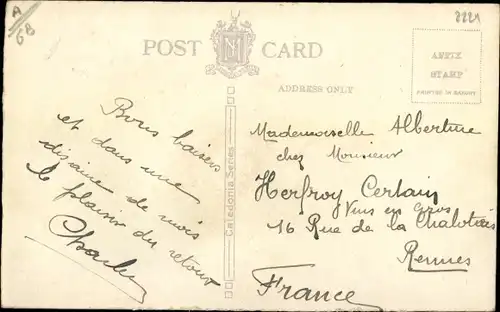 A/6B
2221
POST CARD
ADDRESS ONLY
AFFIX
STAMP
PRINTED IN SAXONY
Caledonia Series
Bons baisers
et dans une
disaine de mois
le plaisir du retour
Charles
Mademoiselle Albertine
chez Monsieur
Herfroy Certain
Vins en Gros
16 Rue de la Chalotais
Rennes
France